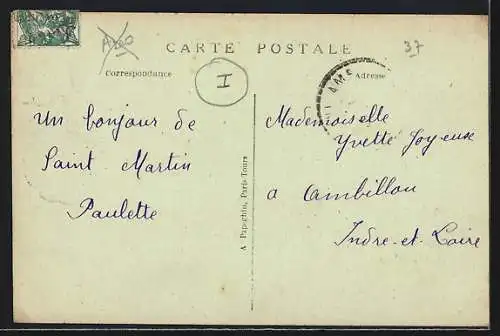 A100
CARTE POSTALE
37
Correspondance
Adresse
I
Un bonjour de
Saint Martin
Paulette
A. Papeghin, Paris-Tours
Mademoiselle
Yvette Joyeuse
a Ambillou
Indre-et-Loire